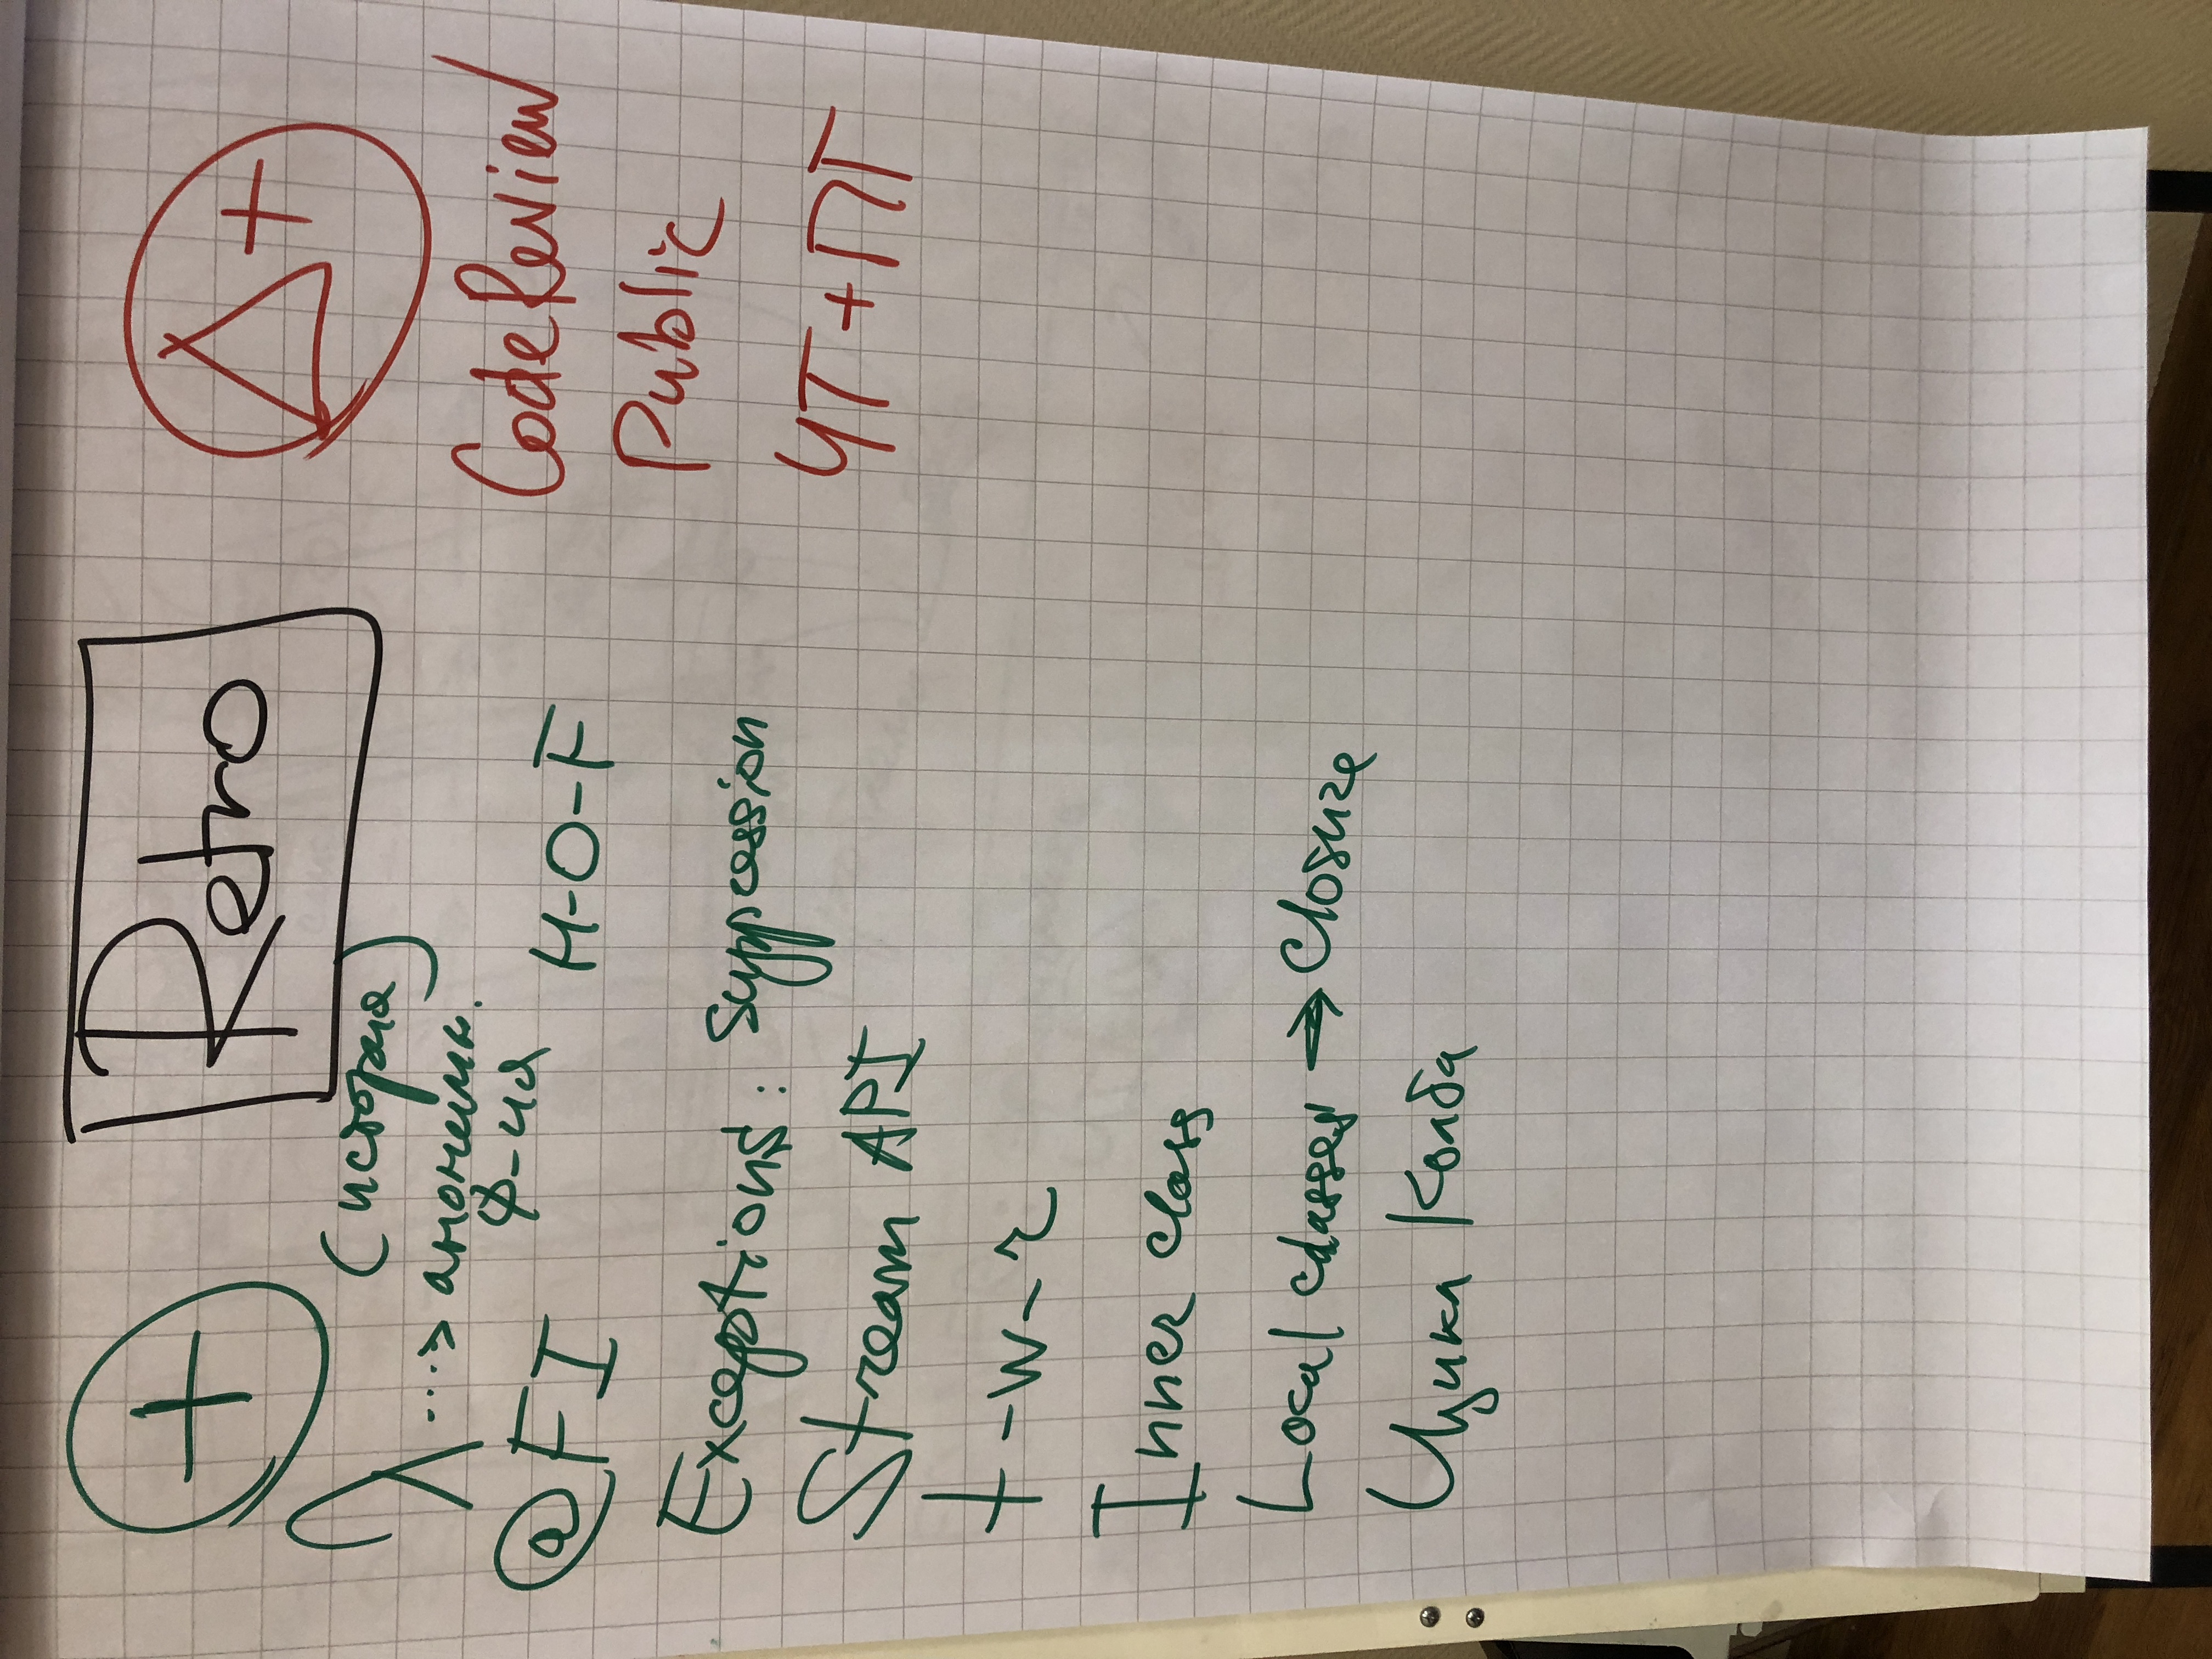 +
Retro
Δ+
λ ...> (история)
анонимн.
ф-ия
@FI
H-O-F
Exceptions: Suppression
Stream API
t-w-r
Inner class
Local classes → Closure
Цикл Колба
CodeReview
Public
ЧТ+ПТ